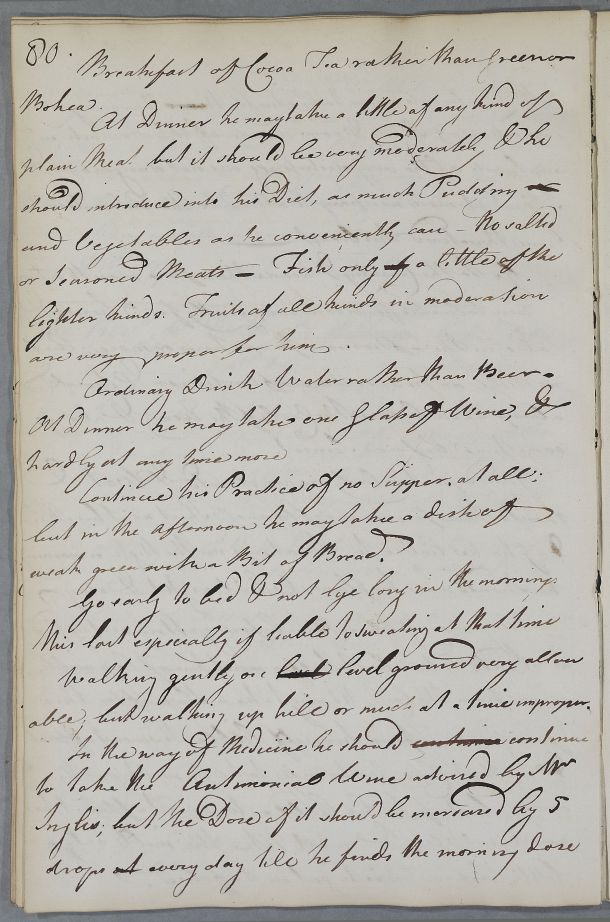 80.
Breakfast of Cocoa Tea rather than Green or
Bohea.
At Dinner he may take a little of any kind of
plain Meat but it should be very moderately, & he
should introduce into his Diet, as much Pudding
and Vegetables as he conveniently can - No salted
or Seasoned Meats - Fish only of a little of the
lighter kinds. Fruits of all kinds in moderation
are very proper for him.
Ordinary Drink Water rather than Beer -
At Dinner he may take one Glass of Wine, &
hardly at any time more
Continue his Practice of no Supper. at all;
but in the afternoon he may take a dish of
weak green with a Bit of Bread.
Go early to bed & not lye long in the mornings
this last especially if liable to sweating at that time
Walking gently on level level ground very allow
able, but walking up hill or much at a time improper.
In the way of Medicine he should continue continue
to take the Antimonial Wine advised by Mr
Inglis, but the Dose of it should be increased by 5
drops at every day till he finds the morning dose